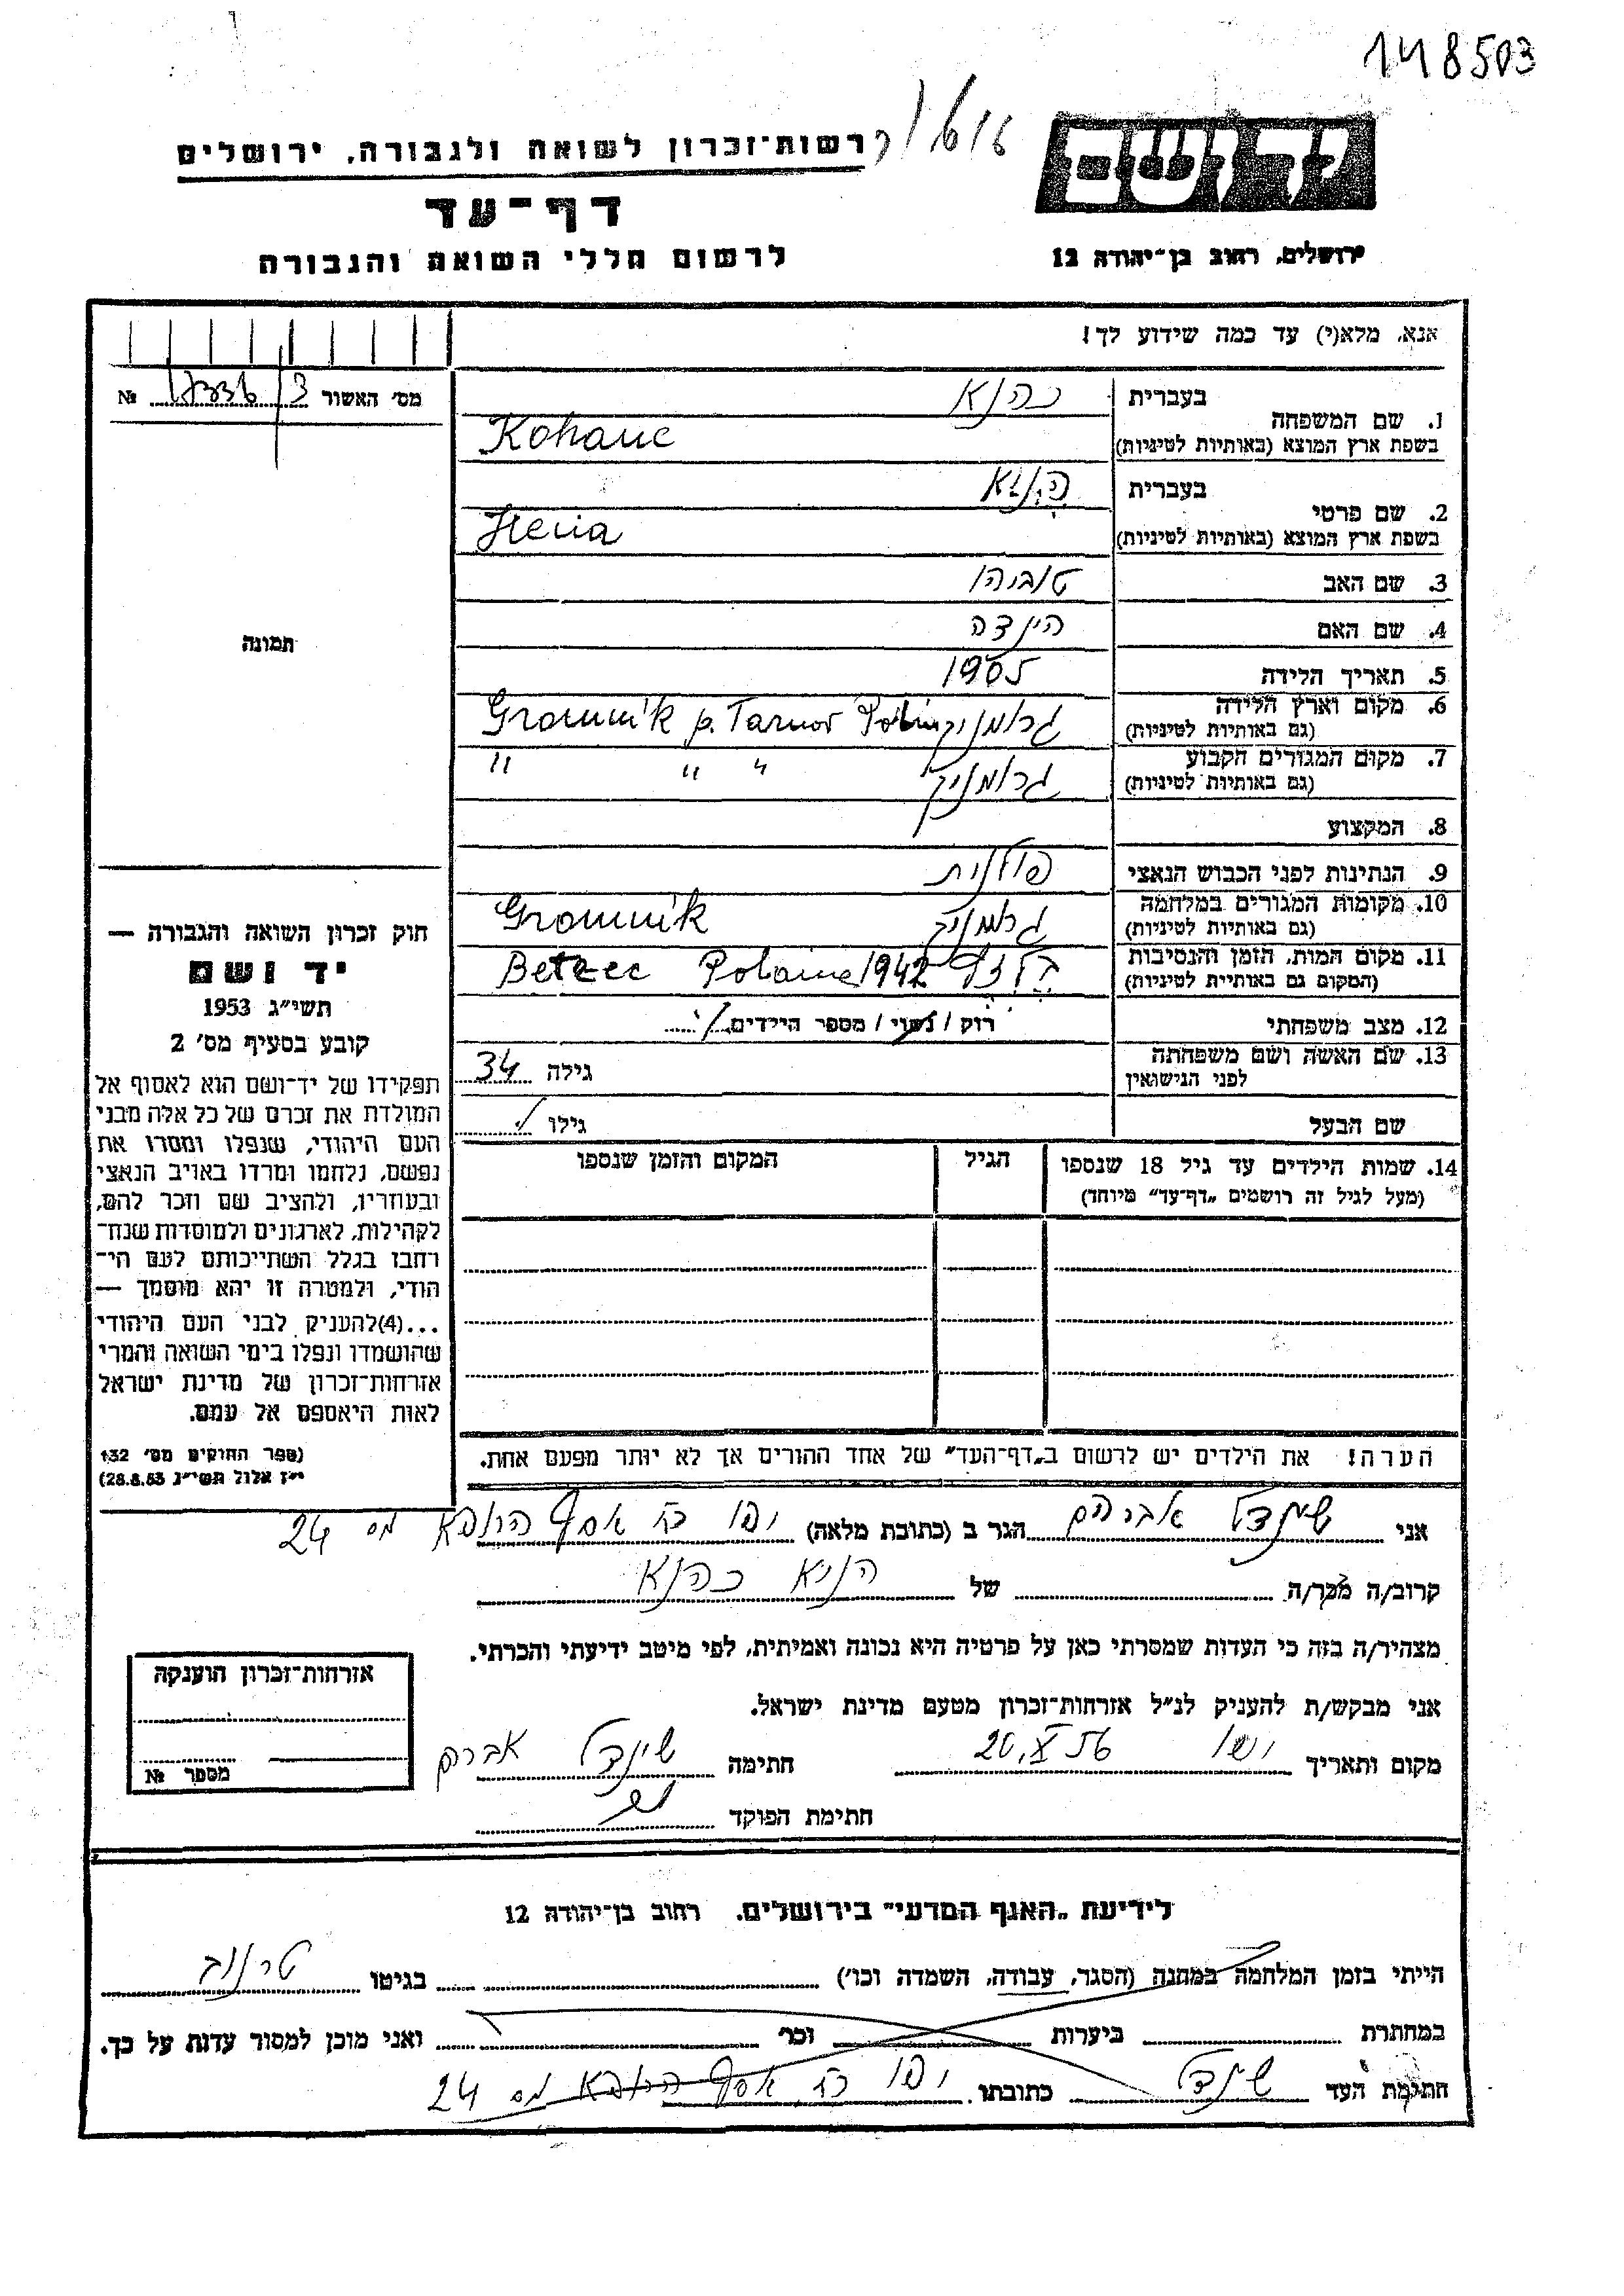 148503
רשות־זכרון לשואה ולגבורה, ירושלים
דף־עד
לרשום חללי השואה והגבורה
יד ושם
ירושלים, רחוב בן־יהודה 12
אנא, מלא(י) עד כמה שידוע לך!
מס' האשור № 
1. שם המשפחה
בעברית כהנא
בשפת ארץ המוצא (באותיות לטיניות) Kohane
2. שם פרטי
בעברית הניא
בשפת ארץ המוצא (באותיות לטיניות) Henia
3. שם האב טוביהו
4. שם האם הינדה
5. תאריך הלידה 1905
6. מקום וארץ הלידה גרומניק Gromnik p. Tarnov
(גם באותיות לטיניות)
7. מקום המגורים הקבוע גרומניק " " "
(גם באותיות לטיניות)
8. המקצוע
9. הנתינות לפני הכבוש הנאצי פולנית
10. מקומות המגורים במלחמה גרומניק Gromnik
(גם באותיות לטיניות)
11. מקום המות, הזמן והנסיבות בלזץ Betzec Polaine 1942
(המקום גם באותיית לטיניות)
12. מצב משפחתי רוק / נשוי / מספר הילדים
13. שם האשה ושם משפחתה
לפני הנישואין גילה 34
שם הבעל גילו
14. שמות הילדים עד גיל 18 שנספו הגיל המקום והזמן שנספו
(מעל לגיל זה רושמים "דף־עד" מיוחד)
הערה! את הילדים יש לרשום ב"דף־העד" של אחד ההורים אך לא יותר מפעם אחת.
תמונה
חוק זכרון השואה והגבורה —
יד ושם
תשי"ג 1953
קובע בסעיף מס' 2
תפקידו של יד־ושם הוא לאסוף אל
המולדת את זכרם של כל אלה מבני
העם היהודי, שנפלו ומסרו את
נפשם, נלחמו ומרדו באויב הנאצי
ובעוזריו, ולהציב שם וזכר להם,
לקהילות, לארגונים ולמוסדות שנח־
רחבו בגלל השתייכותם לעם הי־
הודי, ולמטרה זו יהא מוסמך —
...(4)להעניק לבני העם היהודי
שהושמדו ונפלו בימי השואה והמרי
אזרחות־זכרון של מדינת ישראל
לאות היאספם אל עמם.
(ספר החוקים מס' 132
י"ז אלול תשי"ג 28.8.53)
אני שינדל אברהם הגר ב (כתובת מלאה) יפו רח' אסף הרופא מס 24
קרוב/ה מכר/ה של הניא כהנא
מצהיר/ה בזה כי העדות שמסרתי כאן על פרטיה היא נכונה ואמיתית, לפי מיטב ידיעתי והכרתי.
אני מבקש/ת להעניק לנ"ל אזרחות־זכרון מטעם מדינת ישראל.
מקום ותאריך יפו 20.X 56 חתימה שינדל אברהם
חתימת הפוקד
אזרחות־זכרון הוענקה
מספר №
לידיעת "האגף המדעי" בירושלים, רחוב בן־יהודה 12
הייתי בזמן המלחמה במחנה (הסגר, עבודה, השמדה וכו') בגיטו טרנוב
במחתרת ביערות וכו' ואני מוכן למסור עדות על כך.
חתימת העד שינדל כתובתו יפו רח' אסף הרופא מס 24